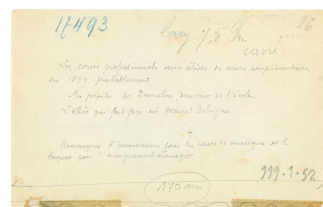 17493
26
larg 7,5 m
cuivre
Les cours professionnels aux élèves du cours complémentaire
en 1899 probablement
Au pupitre M. Demolon directeur de l'école
L'élève qui fait face est Marcel Delvigne
Remarquez l'harmonium pour les cours de musique et l
pour l'enseignement ménager
999-1-52
170 mm